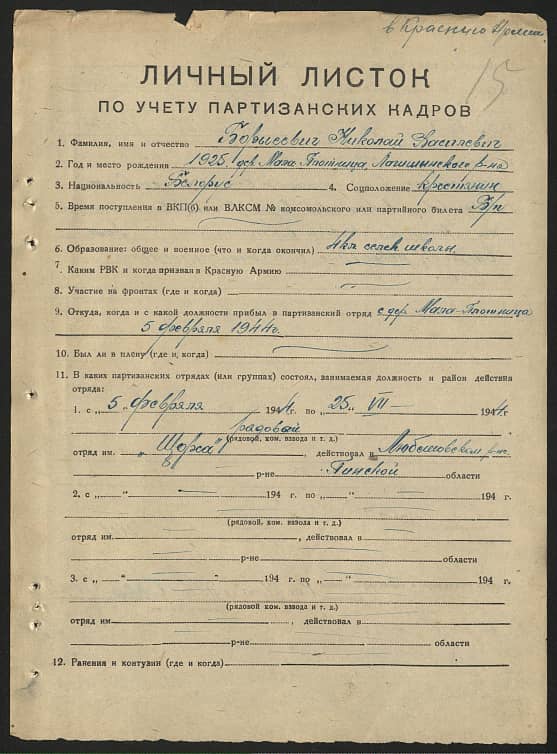 в Красную Армию
15
ЛИЧНЫЙ ЛИСТОК
ПО УЧЕТУ ПАРТИЗАНСКИХ КАДРОВ
1. Фамилия, имя и отчество Борысевич Николай Василевич
2. Год и место рождения 1925 дер. Мала-Плотница, Логишынского р-на
3. Национальность Белорус 4. Соцположение крестянин
5. Время поступления в ВКП(б) или ВЛКСМ № комсомольского или партийного билета Б/п
6. Образование: общее и военное (что и когда окончил) 4 кл. сельск. школы
7. Каким РВК и когда призван в Красную Армию
8. Участие на фронтах (где и когда)
9. Откуда, когда и с какой должности прибыл в партизанский отряд с дер. Мала-Плотница
5 февраля 1944 г.
10. Был ли в плену (где и когда)
11. В каких партизанских отрядах (или группах) состоял, занимаемая должность и район действия
отряда:
1. с „ 5 " февраля 1944 г. по „ 25 " VII — 1944 г.
радовай
(рядовой, ком. взвода и т. д.)
отряд им. „Щорса" , действовал в
р-не Пинской области
2. с „ — " 194 г. по „ — " 194 г.
(рядовой, ком. взвода и т. д.)
отряд им. , действовал в
р-не области
3. с „ " 194 г. по „ — " 194 г.
(рядовой, ком. взвода и т. д.)
отряд им. , действовал в
р-не области
12. Ранения и контузии (где и когда)